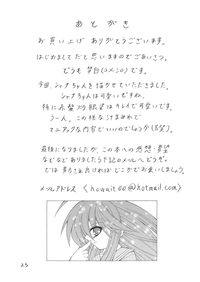 あとがき
お買い上げ ありがとうございます。
はじめましてだと思いますのでごあいさつ。
どうも 笑白(ユメシロ)です。
今回、シャナちゃんを描かせていただきました。
シャナちゃんは可愛いですね。
特に炎髪灼眼はキレイで可愛いです。
うーん、この様な汁まみれで
マニアックな内容でいいのでしょうか(笑)。
最後になりましたが、この本への感想・要望
などなどありましたら下記のメールへどうぞ。
では またお会い出来ればどこかでお会いしましょう。
メールアドレス <howaitee@hotmail.com>
23